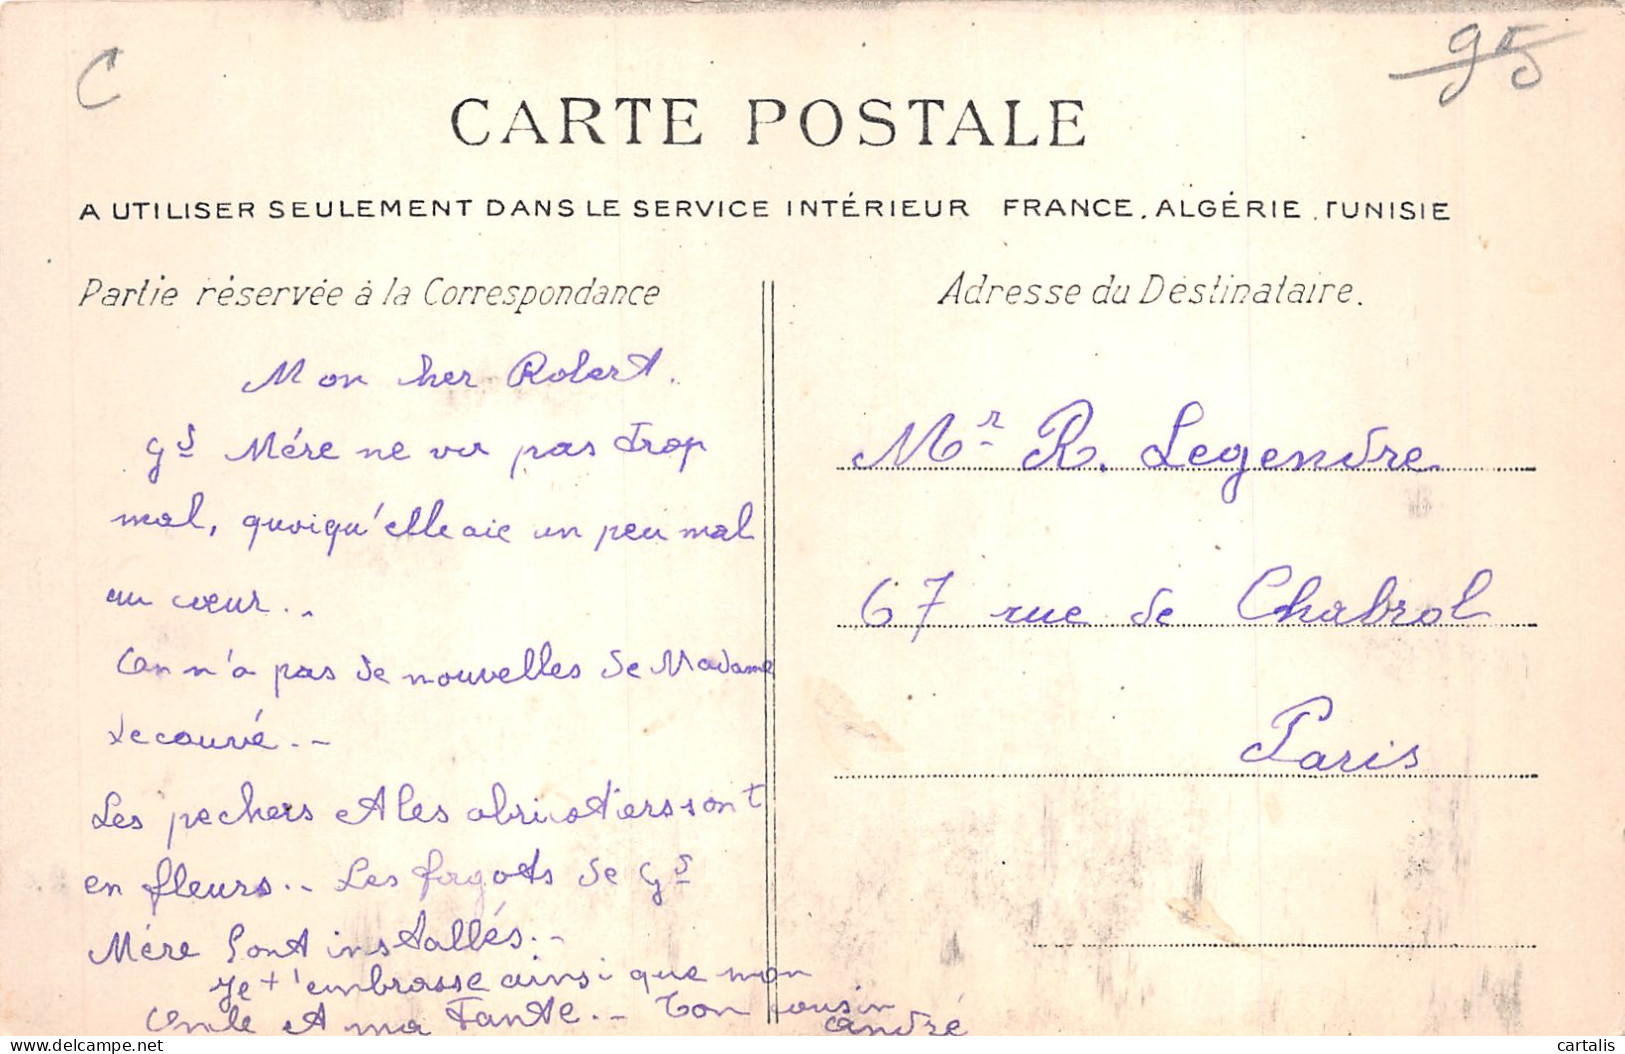 C
95
CARTE POSTALE
A UTILISER SEULEMENT DANS LE SERVICE INTÉRIEUR FRANCE, ALGÉRIE, TUNISIE
Partie réservée à la Correspondance
Mon cher Robert.
Gd Mére ne va pas trop
mal, quoiqu'elle aie un peu mal
au cœur..
On n'a pas de nouvelles de Madame
Lecouvé..
Les pechers et les abricotiers sont
en fleurs.. Les fagots de Gd
Mére sont installés..
Je t'embrasse ainsi que mon
oncle et ma tante.. Ton cousin
André
Adresse du Destinataire.
Mr R. Legendre
67 rue de Chabrol
Paris
delcampe.net
cartalis